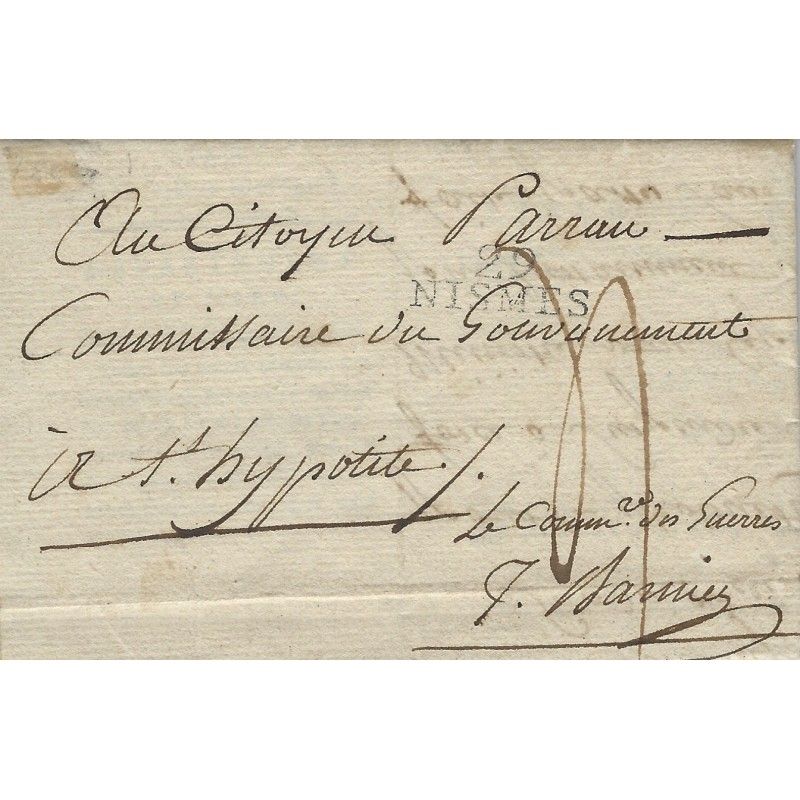 Au Citoyen Parran
29
NISMES
Commissaire du Gouvernement
à St. hypolite
Le Commre. des Guerres